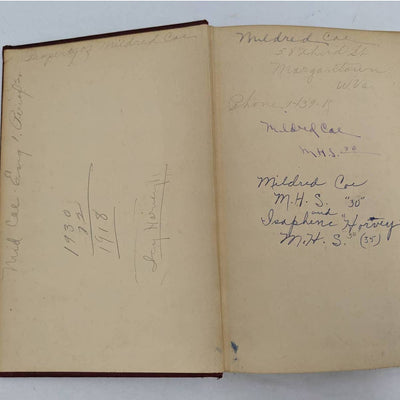 Property of Mildred Coe
Mid Coe Eng 1.
1930
12
1918
Ivy Harvey
Mildred Coe
58 Third St
Morgantown
W.Va.
Phone 1439-R
Mildred Coe
M.H.S. '30
Mildred Coe
M.H.S. "30"
and
Isaphene "Harvey
M.H.S." (35)